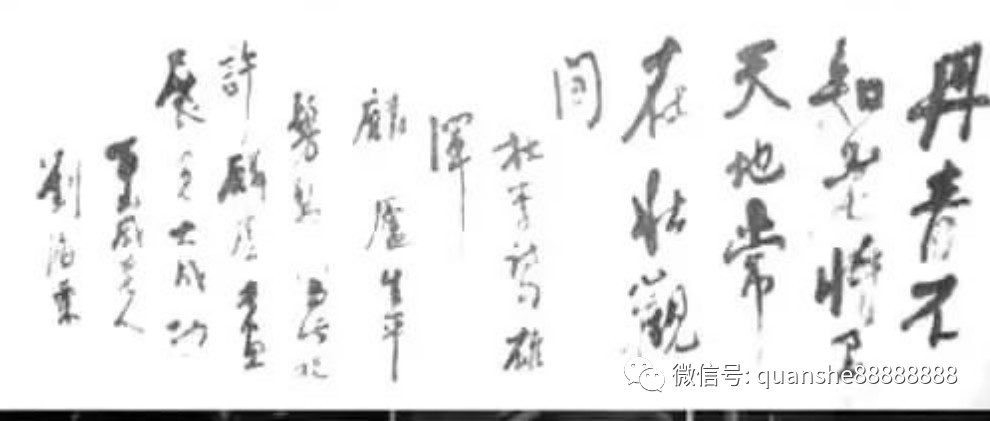 丹青不
知老將至
天地常
在壯觀
間
杜李詩句雄
渾
麟廬生平
髣髴
許麟廬書畫
展覽大成功
老人
劉海粟
微信号: quanshe88888888